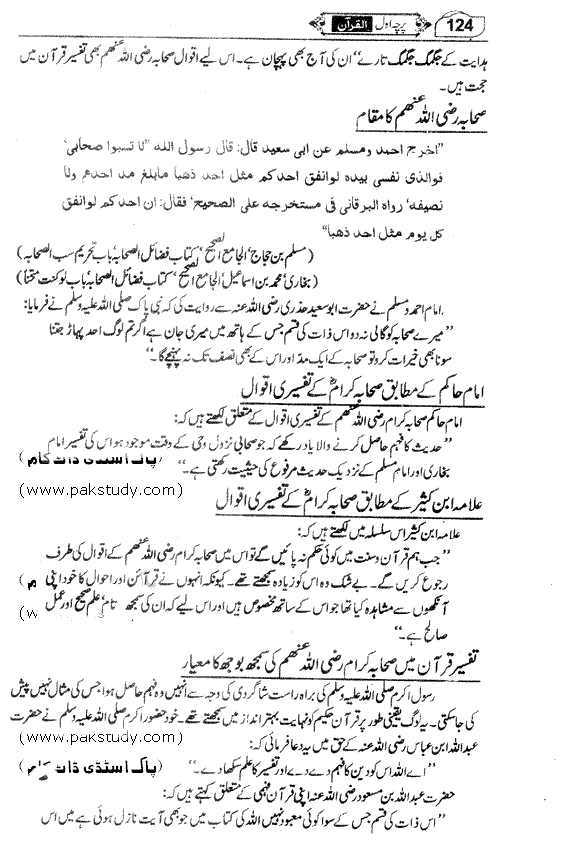 124 القرآن پرچہ اول
ہدایت کے جگمگ جگمگ تارے‘‘ ان کی آج بھی پہچان ہے۔ اس لیے اقوال صحابہ رضی اللہ عنھم بھی تفسیر قرآن میں
حجت ہیں۔
صحابہ رضی اللہ عنھم کا مقام
’’اخرج احمد ومسلم عن ابی سعید قال: قال رسول اللہ ’’لا تسبوا صحابی‘
فوالذی نفسی بیدہ لوانفق احدکم مثل احد ذھبا مابلغ مد احدھم ولا
نصیفہ‘ رواہ البرقانی فی مستخرجہ علی الصحیح‘ فقال: ان احدکم لوانفق
کل یوم مثل احد ذھبا‘‘
(مسلم بن حجاج‘ الجامع الصحیح‘ کتاب فضائل الصحابہ‘ باب تحریم سب الصحابہ)
(بخاری‘ محمد بن اسماعیل‘ الجامع الصحیح‘ کتاب فضائل الصحابہ‘ باب لوکنت متخذاً)
امام احمد و مسلم نے حضرت ابوسعید حذری رضی اللہ عنہ سے روایت کی کہ نبی پاک صلی اللہ علیہ وسلم نے فرمایا:
’’میرے صحابہ کو گالی نہ دو اس ذات کی قسم جس کے ہاتھ میں میری جان ہے اگر تم لوگ احد پہاڑ جتنا
سونا بھی خیرات کرو تو صحابہ کے ایک مد اور اس کے بھی نصف تک نہ پہنچے گا۔‘‘
امام حاکم کے مطابق صحابہ کرامؓ کے تفسیری اقوال
امام حاکم صحابہ کرام رضی اللہ عنھم کے تفسیری اقوال کے متعلق لکھتے ہیں کہ:
’’حدیث کا فہم حاصل کرنے والا یاد رکھے کہ جو صحابی نزول وحی کے وقت موجود ہو اس کی تفسیر امام
بخاری اور امام مسلم کے نزدیک حدیث مرفوع کی حیثیت رکھتی ہے۔‘‘ (پاک اسٹڈی ڈاٹ کام)
(www.pakstudy.com)
علامہ ابن کثیر کے مطابق صحابہ کرامؓ کے تفسیری اقوال
علامہ ابن کثیر اس سلسلہ میں لکھتے ہیں کہ:
’’جب ہم قرآن و سنت میں کوئی حکم نہ پائیں گے تو اس میں صحابہ کرام رضی اللہ عنھم کے اقوال کی طرف
رجوع کریں گے۔ بے شک وہ اس کو زیادہ سمجھتے تھے۔ کیونکہ انہوں نے قرآئن اور احوال کا خود اپنی (م
آنکھوں سے مشاہدہ کیا تھا جو اس کے ساتھ مخصوص ہیں اور اس لیے کہ ان کی سمجھ تام‘ علم صحیح اور عمل (w
صالح ہے۔‘‘
تفسیر قرآن میں صحابہ کرام رضی اللہ عنھم کی سمجھ بوجھ کا معیار
رسول اکرم صلی اللہ علیہ وسلم کی براہ راست شاگردی کی وجہ سے انہیں وہ فہم حاصل ہوا جس کی مثال نہیں پیش
کی جا سکتی۔ یہ لوگ یقینی طور پر قرآن حکیم کو نہایت بہتر انداز میں سمجھتے تھے۔ خود حضور اکرم صلی اللہ علیہ وسلم نے حضرت
(www.pakstudy.com) عبداللہ ابن عباس رضی اللہ عنہ کے حق میں یہ دعا فرمائی کہ:
’’اے اللہ اس کو دین کا فہم دے دے اور تفسیر کا علم سکھا دے۔‘‘ (پاک اسٹڈی ڈاٹ کام)
حضرت عبداللہ بن مسعود رضی اللہ عنہ اپنی قرآن فہمی کے متعلق کہتے ہیں کہ:
’’اس ذات کی قسم جس کے سوا کوئی معبود نہیں اللہ کی کتاب میں جو بھی آیت نازل ہوئی ہے میں اس